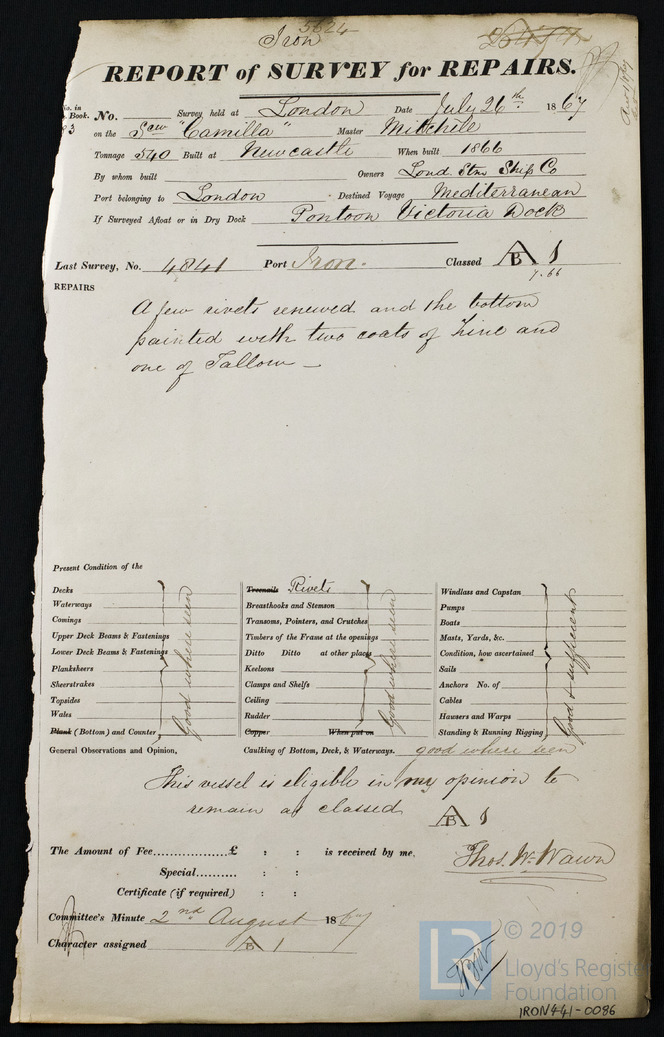 5624
Iron
REPORT of SURVEY for REPAIRS.
No. in
Book. No. Survey held at London Date July 26th 1867
93 on the Scw "Camilla" Master Mitchele
Tonnage 540 Built at Newcastle When built 1866
By whom built Owners Lond. Stm Ship Co
Port belonging to London Destined Voyage Mediterranean
If Surveyed Afloat or in Dry Dock Pontoon Victoria Dock
Last Survey, No. 4841 Port Iron. Classed A B 1
7.66
REPAIRS
A few rivets renewed and the bottom
painted with two coats of Zinc and
one of Tallow
Present Condition of the
Decks
Waterways
Comings
Upper Deck Beams & Fastenings
Lower Deck Beams & Fastenings
Planksheers
Sheerstrakes
Topsides
Wales
Plank (Bottom) and Counter
Good where seen
Treenails Rivets
Breasthooks and Stemson
Transoms, Pointers, and Crutches
Timbers of the Frame at the openings
Ditto Ditto at other places
Keelsons
Clamps and Shelfs
Ceiling
Rudder
Copper When put on
Good where seen
Windlass and Capstan
Pumps
Boats
Masts, Yards, &c.
Condition, how ascertained
Sails
Anchors No. of
Cables
Hawsers and Warps
Standing & Running Rigging
Good & sufficient
General Observations and Opinion, Caulking of Bottom, Deck, & Waterways. good where seen
This vessel is eligible in my opinion to
remain as classed A B 1
The Amount of Fee..................£ : : is received by me,
Thos. W. Wawn
Special........... : :
Certificate (if required) : :
Committee's Minute 2nd August 1867
Character assigned A B 1
© 2019
LR
Lloyd's Register
Foundation
IRON441-0086